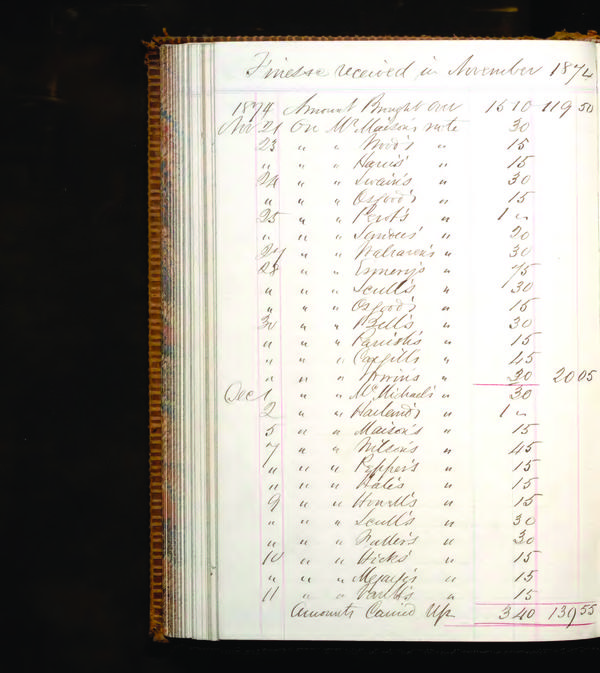 Fines &c received in November 1874
1874 Amount Brought Over 15 10 119 50
Nov 21 On Mr Maison's note 30
23 " " Wood's " 15
" " " Harris' " 15
24 " " Swain's " 30
" " " Osgood's " 15
25 " " Perot's " 1 "
" " " " 20
27 " " Walraven's " 30
28 " " Esmery's " 75
" " " Scull's " 30
" " " Osgood's " 15
30 " " Bell's " 30
" " " Parish's " 15
" " " Cargill's " 45
" " " " 30 20 05
Dec 1 " " McMichael's " 30
2 " " Haviland's " 1 "
5 " " Maison's " 15
7 " " Wilson's " 45
" " " Pepper's " 15
" " " Hale's " 15
9 " " Howell's " 15
" " " Scull's " 30
" " " Waller's " 30
10 " " Hicks' " 15
" " " " 15
11 " " " 15
Amounts Carried Up 3 40 139 55